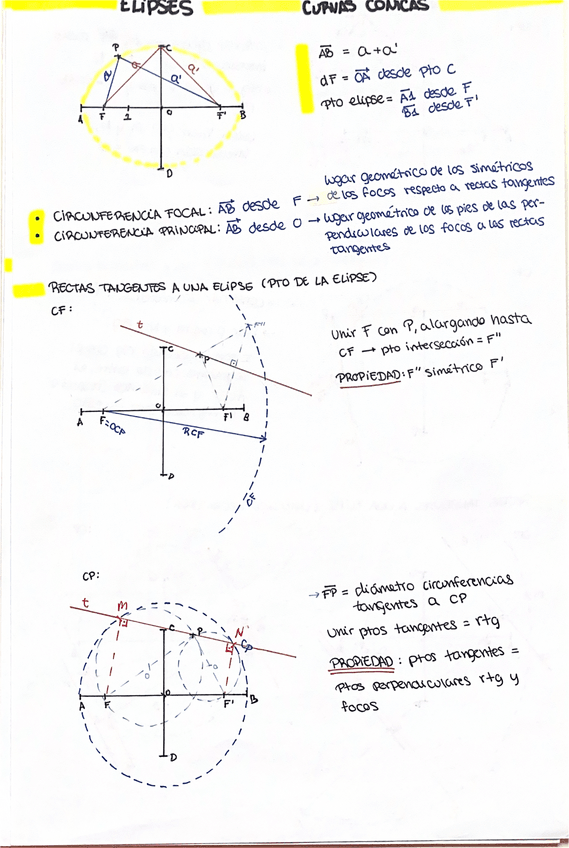 ELIPSES CURVAS CÓNICAS
P C
a' a a' a'
A F 1 O F' B
D
AB = a+a'
dF = OA desde pto C
pto elipse = A1 desde F
B1 desde F'
• CIRCUNFERENCIA FOCAL: AB desde F → lugar geométrico de los simétricos
de los focos respecto a rectas tangentes
• CIRCUNFERENCIA PRINCIPAL: AB desde O → lugar geométrico de los pies de las per-
pendiculares de los focos a las rectas
tangentes
RECTAS TANGENTES A UNA ELIPSE (PTO DE LA ELIPSE)
CF:
t
F''
C
P
O
A F=OCF F' B
RCF
D
CF
Unir F con P, alargando hasta
CF → pto intersección = F"
PROPIEDAD: F" simétrico F'
CP:
t M
C P N
CP
O' O
A F O F' B
D
→ FP = diámetro circunferencias
tangentes a CP
Unir ptos tangentes = rtg
PROPIEDAD: ptos tangentes =
ptos perpendiculares rtg y
focos